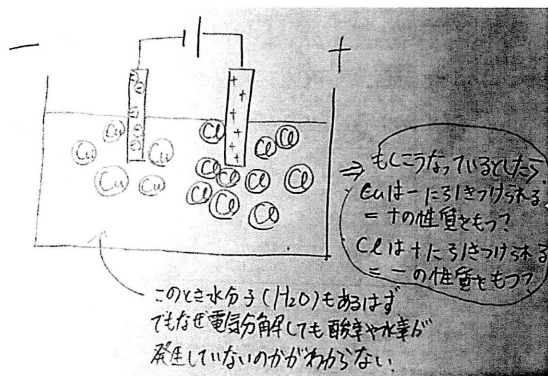 − +
⊖ ⊖ ⊖ ⊖
+ + + + + +
Cu Cu Cu Cu Cu
Cl Cl Cl Cl Cl Cl Cl Cl Cl Cl Cl
⇒ もしこうなっているとしたら
Cuは−に引きつけられる
=+の性質をもつ?
Clは+に引きつけられる
=−の性質をもつ?
このとき水分子(H2O)もあるはず
でもなぜ電気分解しても酸素や水素が
発生していないのかがわからない.